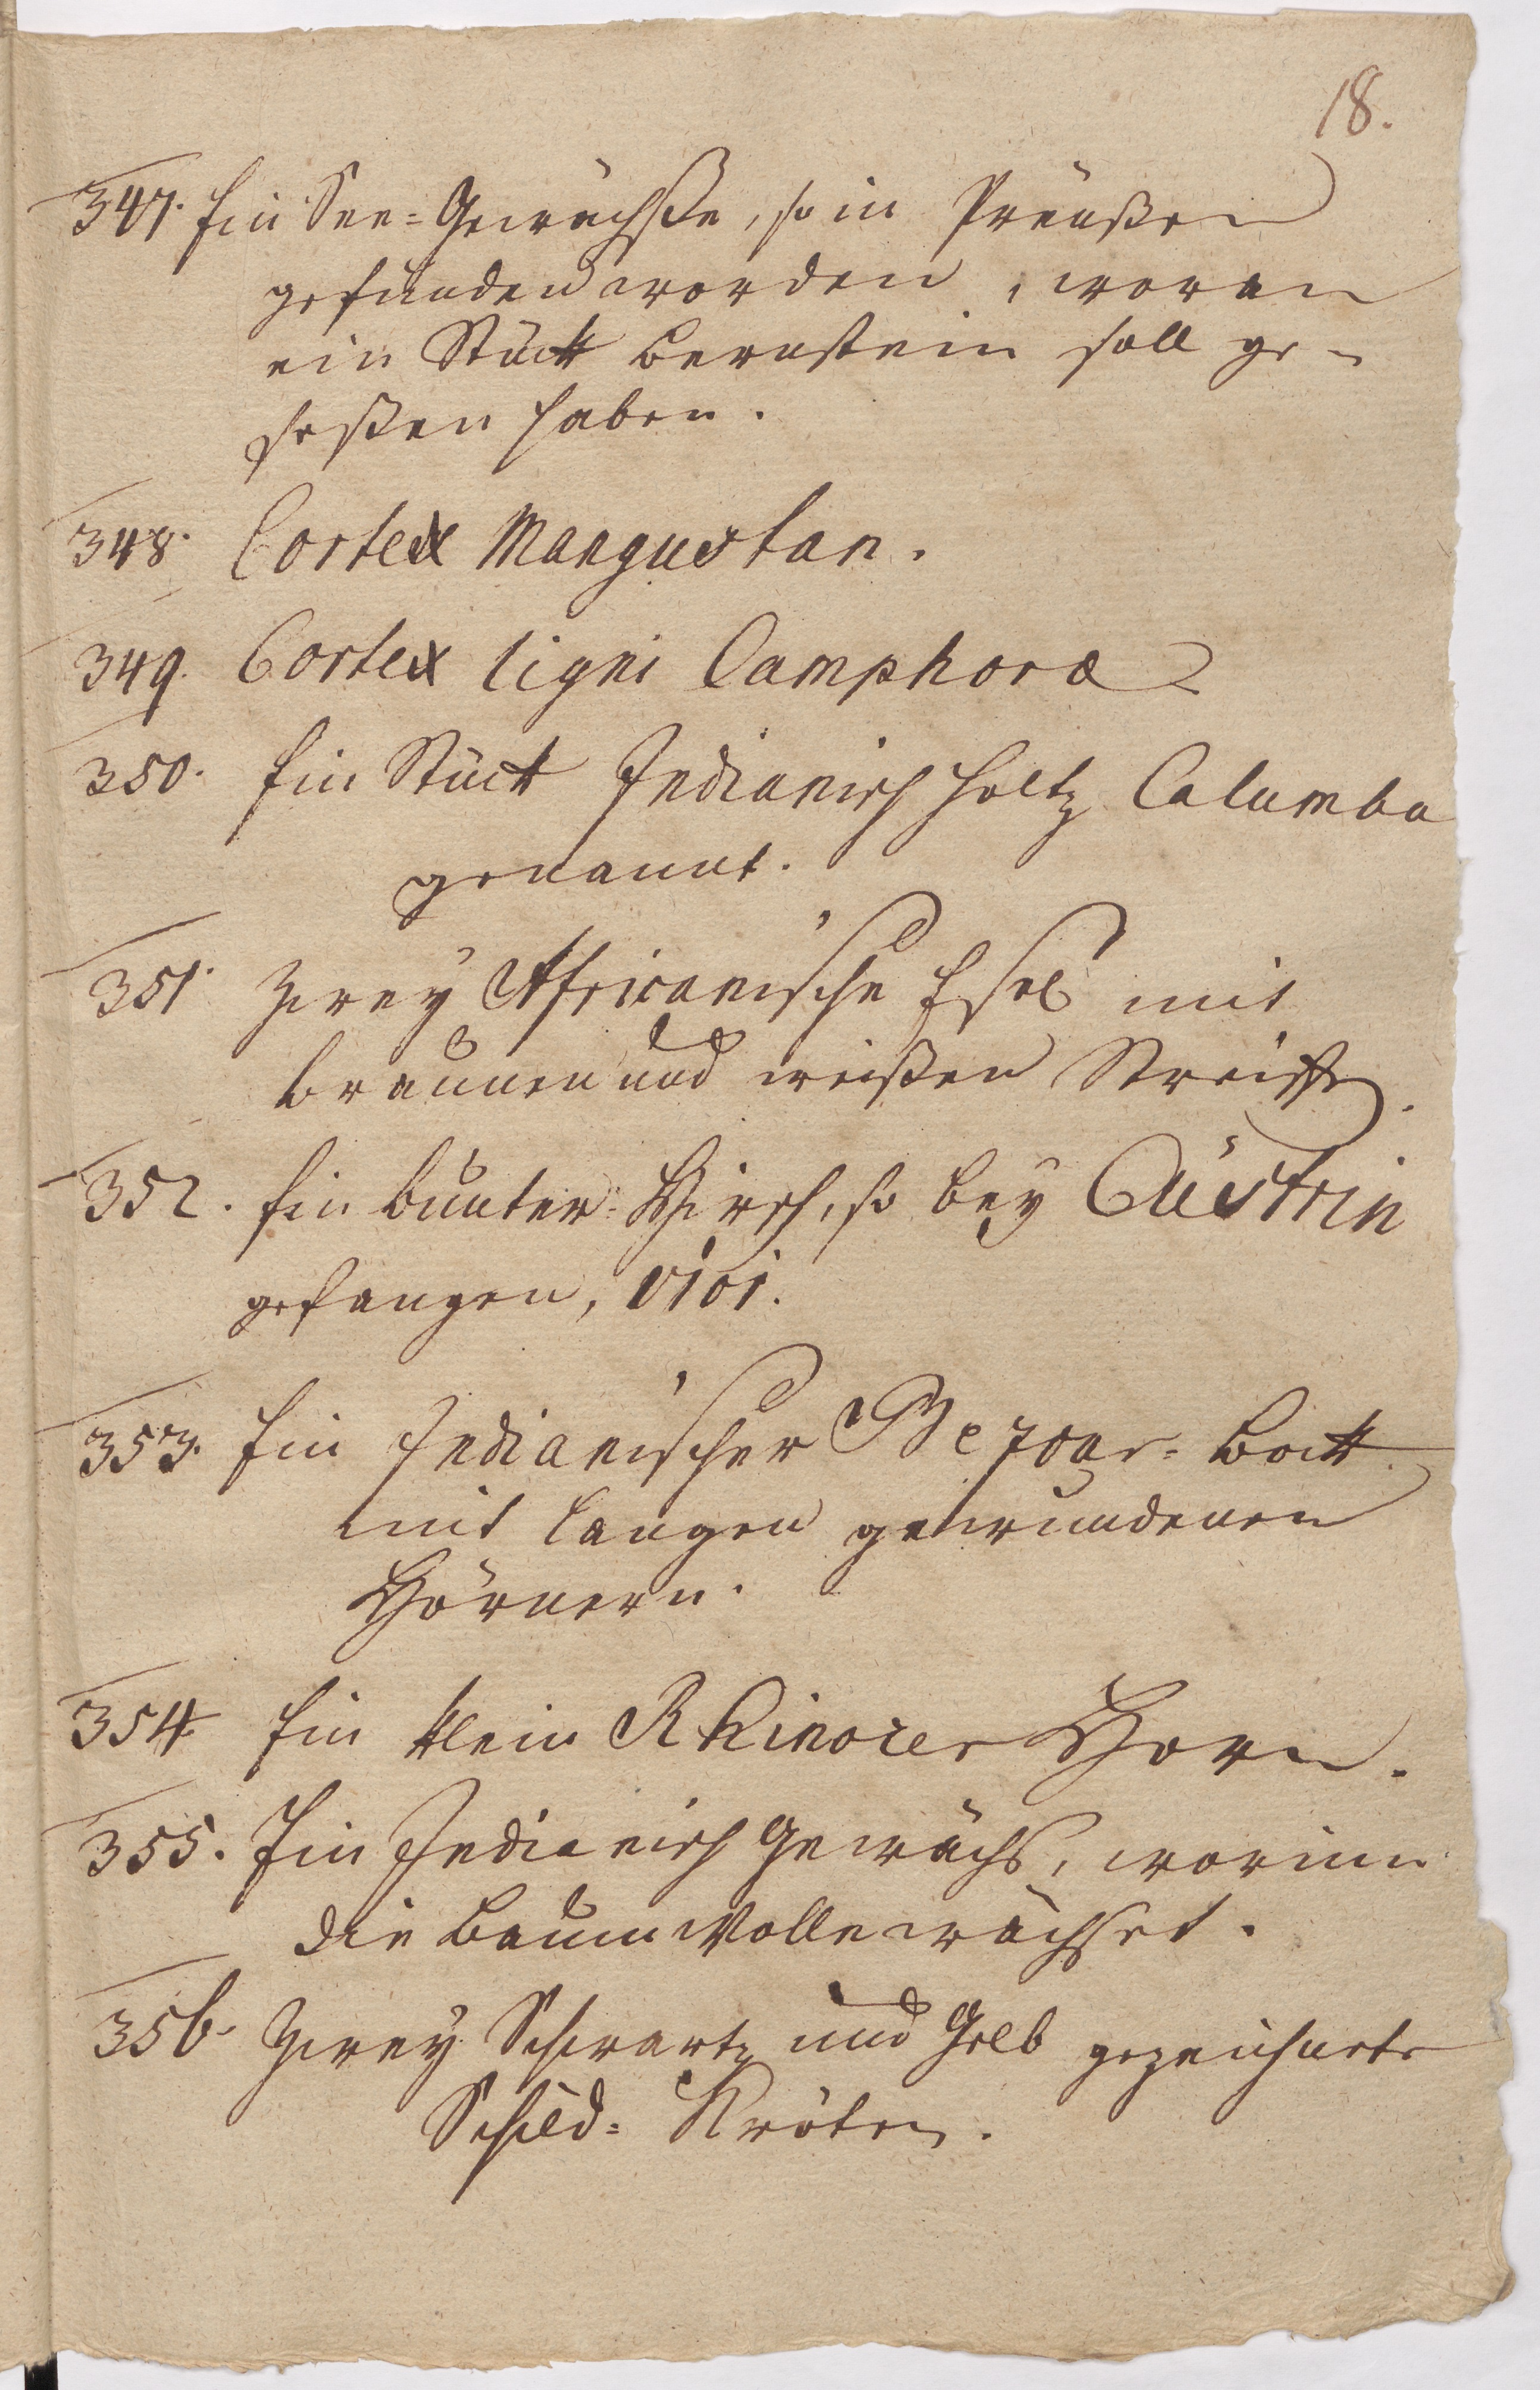 18.
347. Ein See-Gewächße, so in Preüßen
gefunden worden, woran
ein Stück bernstein soll ge-
seßen haben.
348. Cortex Mangustan.
349. Cortex Ligni Camphoræ
350. Ein Stück Indianisch Holtz Calumba
genannt.
351. Zwey Africanische Esel mit
braunen und weißen Streiffen.
352. Ein bunter-Hirsch, so bey Cüstrin
gefangen,
353. Ein Indianischer Bezoar-bock
mit langen gewundenen
Hörnern.
354. Ein klein Rhinocer Horn.
355. Ein Indianisch Gewächs, worinn
die baum Wolle wächset.
356. Zwey Schwartz und Gelb gezeichnete
Schild-Kröten.